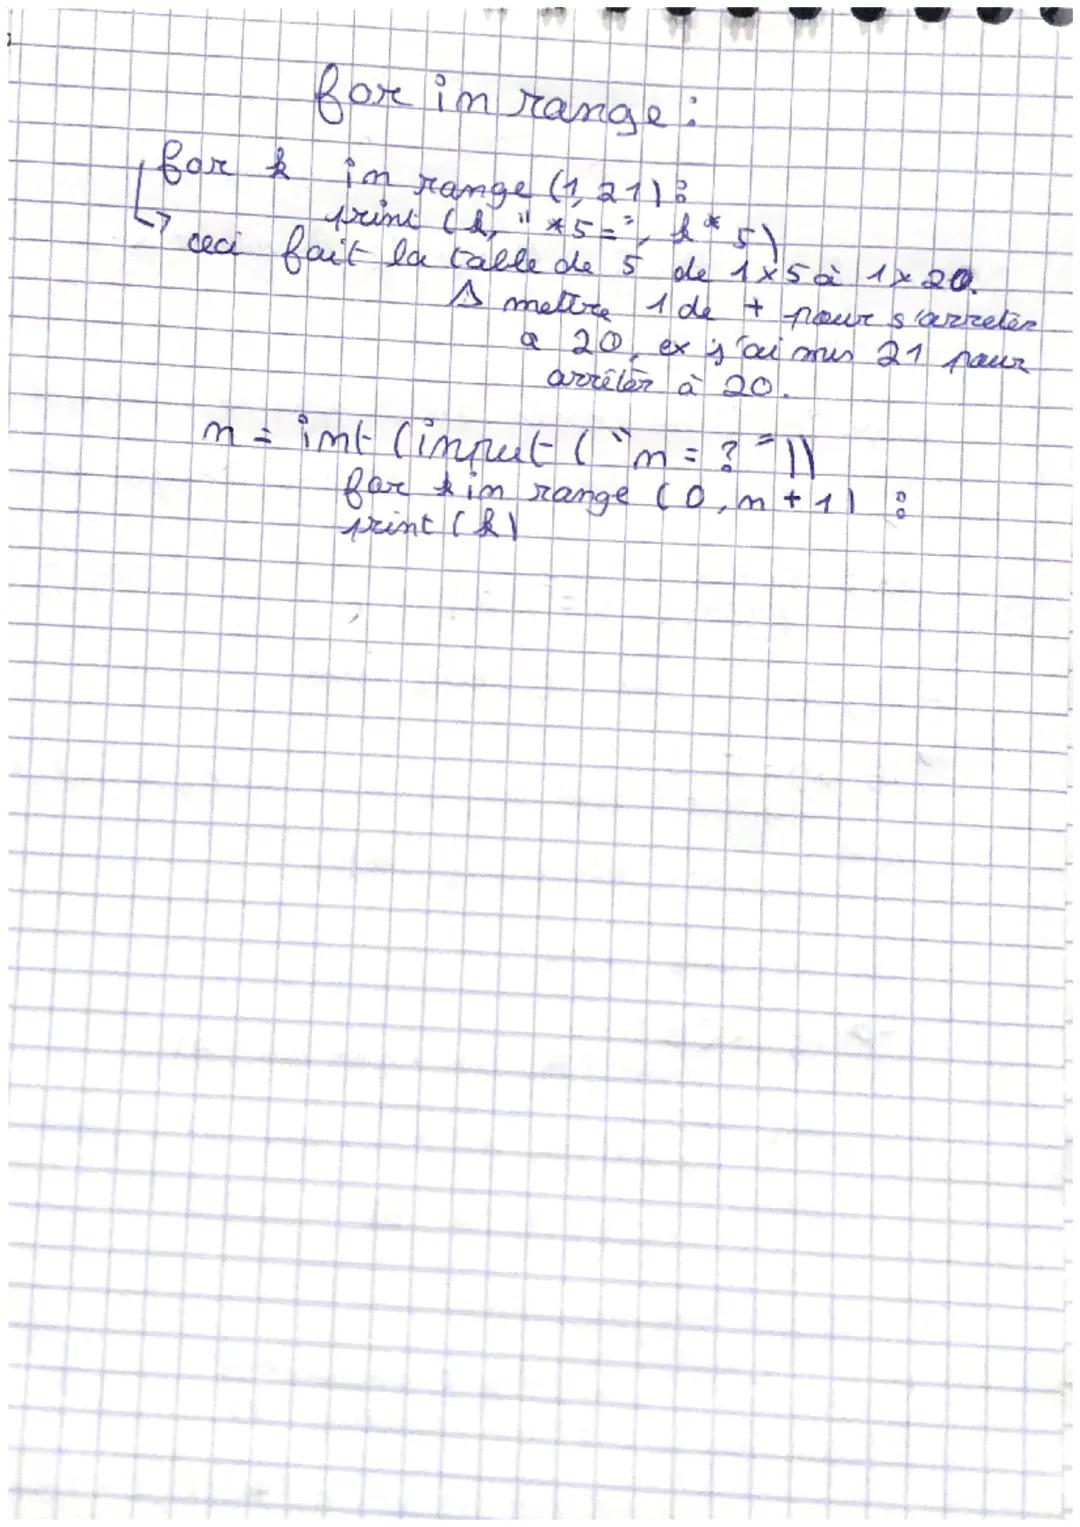 for in range :
for k in range (1,21) :
print (k, " *5=", k*5)
ceci fait la table de 5 de 1x5 à 1x20.
⚠ mettre 1 de + pour s'arreter
a 20, ex j'ai mis 21 pour
arrêter à 20.
n = int (input ("n = ? "))
for k in range (0, n+1) :
print (k)